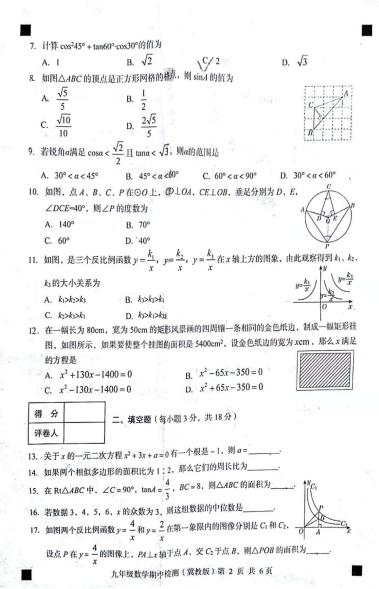 7. 计算 cos²45° + tan60°·cos30°的值为
A. 1 B. √2 C. 2 D. √3
8. 如图△ABC 的顶点是正方形网格的格点, 则 sinA 的值为
A. √5/5 B. 1/2
C. √10/10 D. 2√5/5
9. 若锐角α满足 cosα < √2/2 且 tanα < √3, 则α的范围是
A. 30°<α<45° B. 45°<α<60° C. 60°<α<90° D. 30°<α<60°
10. 如图, 点 A、B、C、P 在⊙O 上, CD⊥OA, CE⊥OB, 垂足分别为 D、E,
∠DCE=40°, 则∠P 的度数为
A. 140° B. 70°
C. 60° D. 40°
11. 如图, 是三个反比例函数 y=k₁/x, y=k₂/x, y=k₃/x 在 x 轴上方的图象, 由此观察得到 k₁、k₂、
k₃的大小关系为
A. k₁>k₂>k₃ B. k₃>k₂>k₁
C. k₂>k₃>k₁ D. k₃>k₁>k₂
12. 在一幅长为 80cm, 宽为 50cm 的矩形风景画的四周镶一条相同的金色纸边, 制成一幅矩形挂
图, 如图所示, 如果要使整个挂图的面积是 5400cm², 设金色纸边的宽为 xcm, 那么 x 满足
的方程是
A. x²+130x-1400=0 B. x²-65x-350=0
C. x²-130x-1400=0 D. x²+65x-350=0
得 分
评卷人
二、填空题 (每小题 3 分, 共 18 分)
13. 关于 x 的一元二次方程 x²+3x+a=0 有一个根是-1, 则 a=______.
14. 如果两个相似多边形的面积比为 1:2, 那么它们的周长比为______.
15. 在 Rt△ABC 中, ∠C=90°, tanA=4/3, BC=8, 则△ABC 的面积为______.
16. 若数据 3, 4, 5, 6, x 的众数为 3, 则这组数据的中位数是______.
17. 如图两个反比例函数 y=4/x 和 y=2/x 在第一象限内的图像分别是 C₁ 和 C₂,
设点 P 在 y=4/x 的图像上, PA⊥x 轴于点 A, 交 C₂于点 B, 则△POB 的面积为______.
九年级数学期中检测 (冀教版) 第 2 页 共 6 页